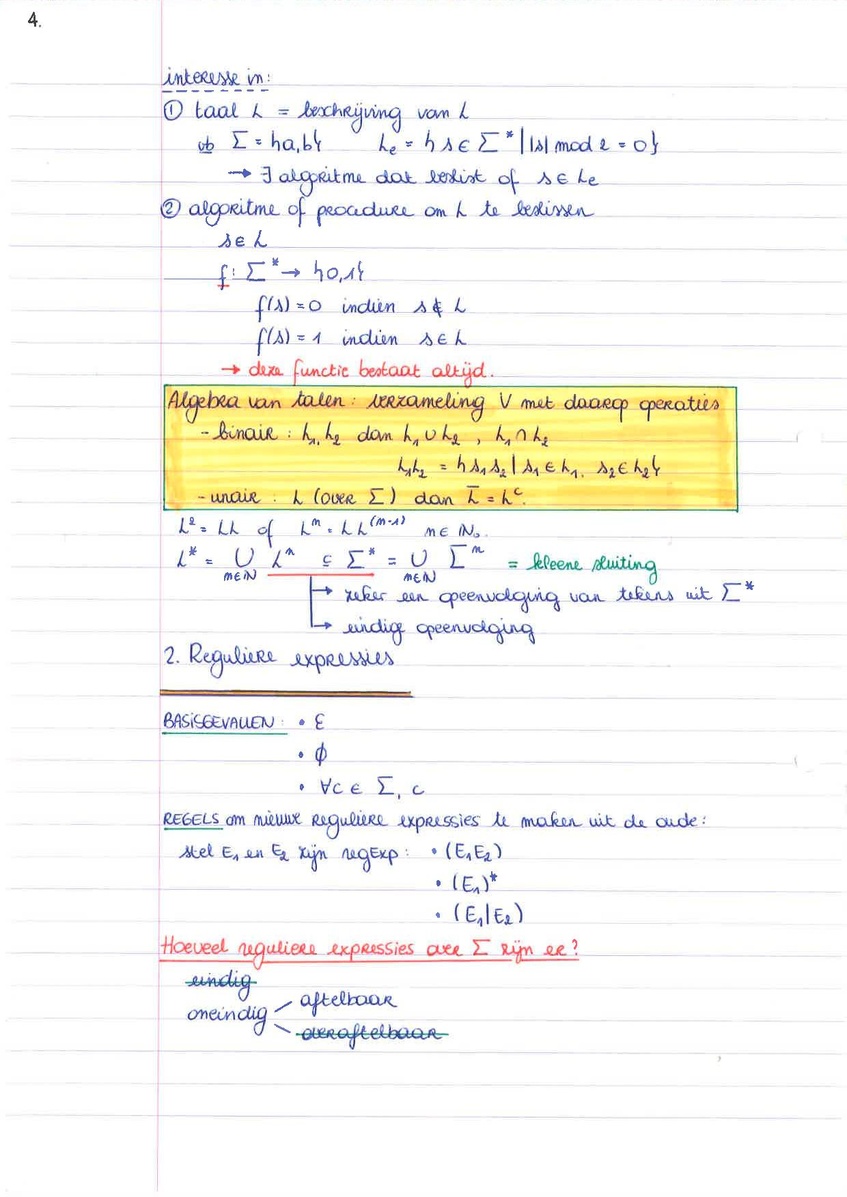 4.
interesse in:
① taal L = beschrijving van L
vb Σ = {a,b} Le = { s ∈ Σ* | |s| mod 2 = 0}
→ ∃ algoritme dat beslist of s ∈ Le
② algoritme of procedure om L te beslissen
s ∈ L
f: Σ* → {0,1}
f(s) = 0 indien s ∉ L
f(s) = 1 indien s ∈ L
→ deze functie bestaat altijd.
Algebra van talen: verzameling V met daarop operaties
- binair : L₁, L₂ dan L₁ ∪ L₂ , L₁ ∩ L₂
L₁L₂ = { s₁s₂ | s₁ ∈ L₁, s₂ ∈ L₂}
- unair : L (over Σ) dan L̅ = Lᶜ.
L² = LL of Lⁿ = LL⁽ⁿ⁻¹⁾ n ∈ ℕ₀.
L* = ∪ Lⁿ ⊆ Σ* = ∪ Σⁿ = kleene sluiting
n∈ℕ n∈ℕ
→ zeker een opeenvolging van tekens uit Σ*
→ eindige opeenvolging
2. Reguliere expressies
BASISGEVALLEN : • ε
• ϕ
• ∀c ∈ Σ, c
REGELS om nieuwe reguliere expressies te maken uit de oude:
stel E₁ en E₂ zijn regExp: • (E₁E₂)
• (E₁)*
• (E₁|E₂)
Hoeveel reguliere expressies over Σ zijn er?
eindig
oneindig aftelbaar
overaftelbaar